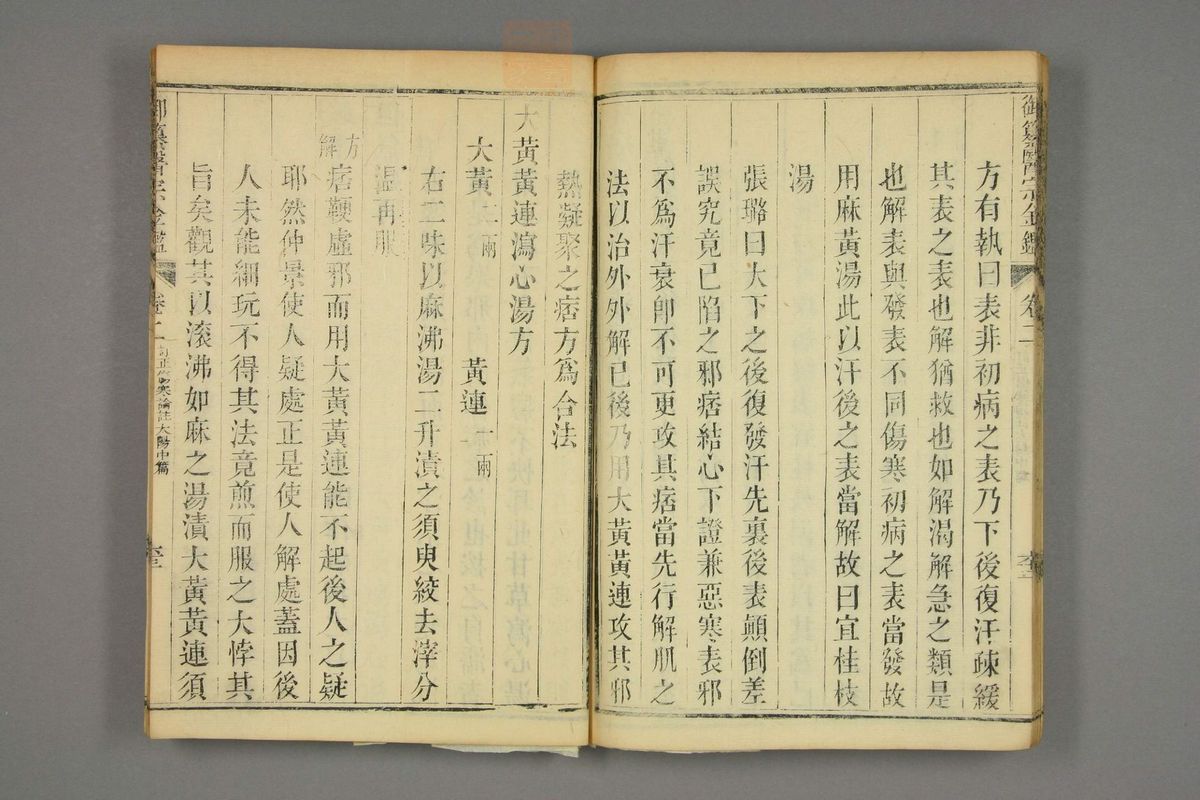 御纂醫宗金鑑 卷二
方有執曰表非初病之表乃下後復汗疎緩
其表之表也解猶救也如解渴解急之類是
也解表與發表不同傷寒初病之表當發故
用麻黃湯此以汗後之表當解故曰宜桂枝
湯
張璐曰大下之後復發汗先裏後表顛倒差
誤究竟已陷之邪痞結心下證兼惡寒表邪
不爲汗衰卽不可更攻其痞當先行解肌之
法以治外外解已後乃用大黃黃連攻其邪
熱凝聚之痞方爲合法
大黃黃連瀉心湯方
大黃二兩 黃連一兩
右二味以麻沸湯二升漬之須臾絞去滓分
溫再服
方解
痞鞕虛邪而用大黃黃連能不起後人之疑
耶然仲景使人疑處正是使人解處蓋因後
人未能細玩不得其法竟煎而服之大悖其
旨矣觀其以滾沸如麻之湯漬大黃黃連須
御纂醫宗金鑑 卷二 訂正傷寒論註太陽中篇